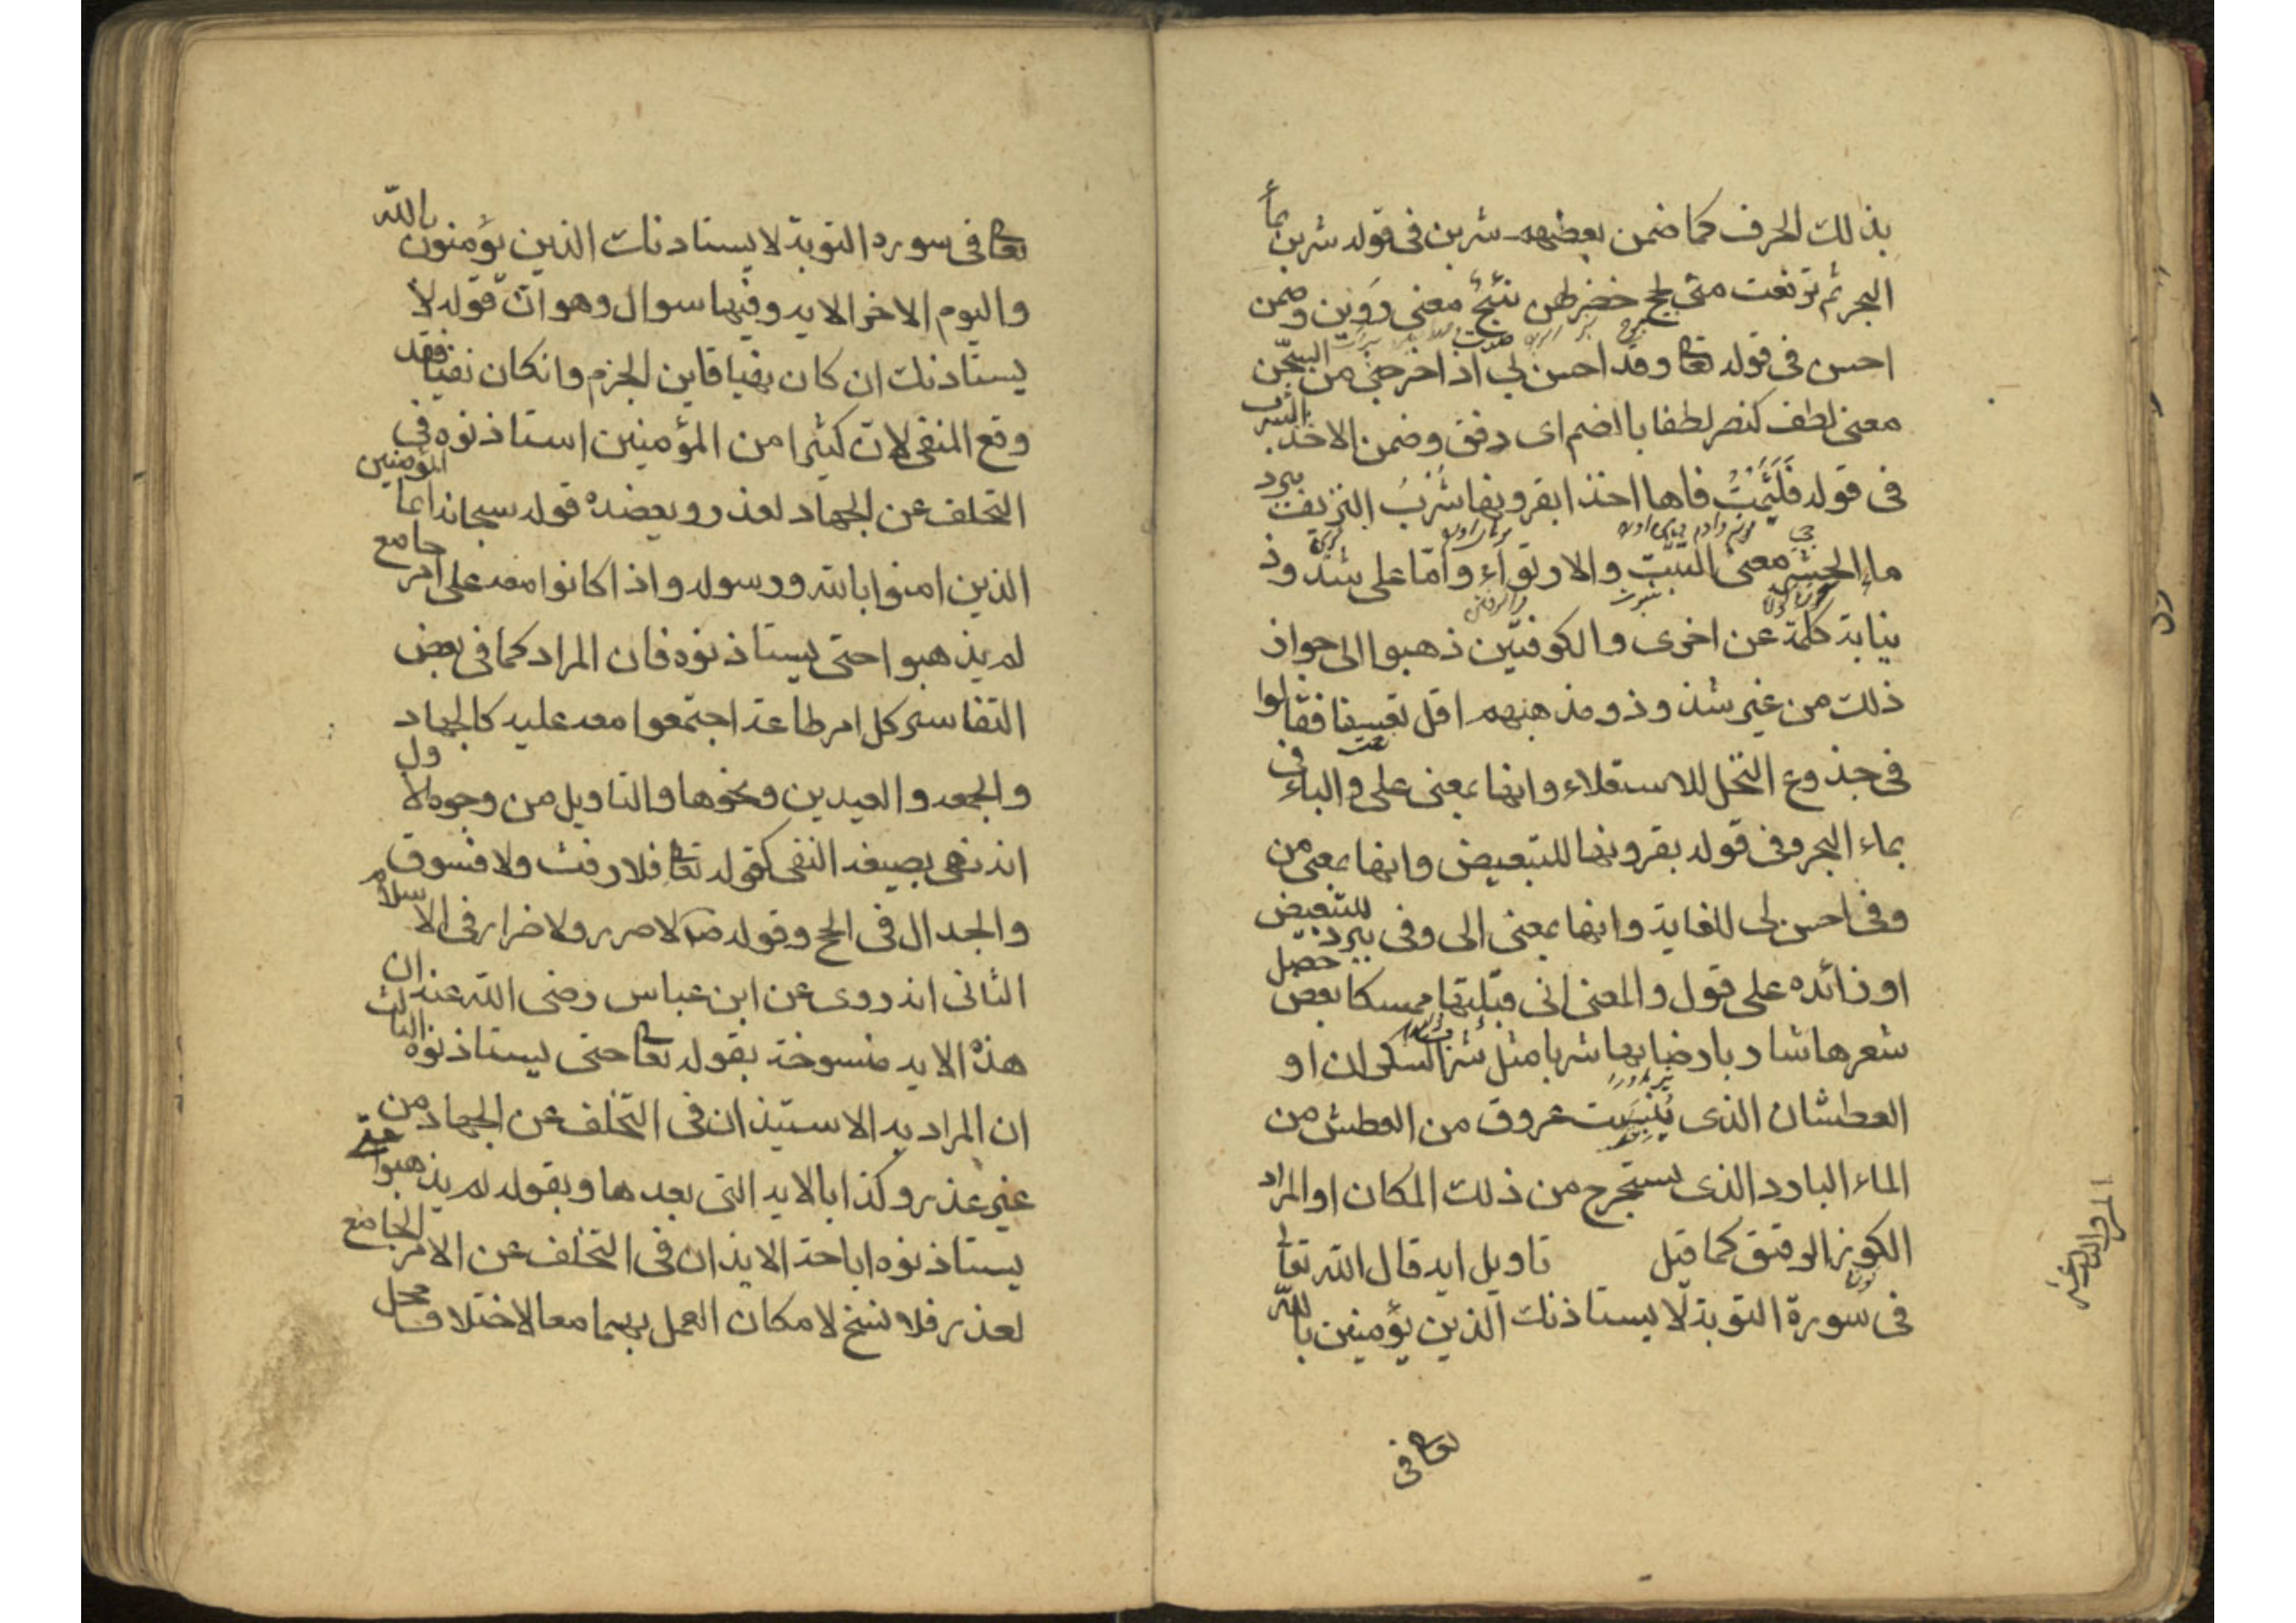 بذلك الحرف كما ضمن بعضهم شربن فى قوله شربن بماء
البحر ثم ترفعت متى لجج خضر لهن نئيج معنى روين وضمن
احسن فى قوله تعا وقد احسن بي اذ اخرجني من السجن
معنى لطف كنصر لطفا بالضم اى رفق وضمن الاخذ الشرب
فى قوله فلثمت فاها اخذا بقرونها شرب النزيف ببرد
ماء الحشرج معنى والارتواء واما على شذوذ
نيابة كلمة عن اخرى والكوفيين ذهبوا الى جواز
ذلك من غير شذوذ ومذهبهم اقل تعسفا فقالوا
فى جذوع النخل للاستعلاء وانها بمعنى على والباء فى
بماء البحر وفى قوله بقرونها للتبعيض وانها بمعنى من
وفى احسن بى للغاية وانها بمعنى الى وفى ببرد للتبعيض
او زائده على قول والمعنى انى قبلتها ممسكا بعض خصل
شعرها شاربا رضابها شربا مثل شرب السكران او
العطشان الذى يبست عروق من العطش من
الماء البارد الذى يستخرج من ذلك المكان او المراد
الكوز الرقيق كما قيل تاويل ايه قال الله تعا
فى سورة التوبة لا يستاذنك الذين يؤمنين بالله
تعا فى
تعا فى سوره التوبة لا يستاذنك الذين يؤمنون بالله
واليوم الاخر الايه وفيها سوال وهو ان قوله لا
يستاذنك ان كان نهيا فاين الجزم وانكان نفيا فقد
وقع المنفى لان كثيرا من المؤمنين استاذنوه فى
التخلف عن الجهاد لعذر ويعضده قوله سبحانه انما المؤمنين
الذين امنوا بالله ورسوله واذا كانوا معه على امر جامع
لم يذهبوا حتى يستاذنوه فان المراد كما فى بعض
التفاسير كل امر طاعة اجتمعوا معه عليه كالجهاد
والجمعه والعيدين ونحوها والتاويل من وجوه الاول
انه نهى بصيغة النفى كقوله تعا فلا رفث ولا فسوق
والجدال فى الحج وقوله لا ضرر ولا ضرار فى الاسلام
الثانى انه روى عن ابن عباس رضى الله عنه ان
هذه الايه منسوخة بقوله تعا حتى يستاذنوه الثالث
ان المراد به الاستيذان فى التخلف عن الجهاد من
غير عذر وكذا بالايه التى بعدها وبقوله لم يذهبوا حتى
يستاذنوه اباحة الايذان فى التخلف عن الامر الجامع
لعذر فلا نسخ لامكان العمل بهما معا لاختلاف محل